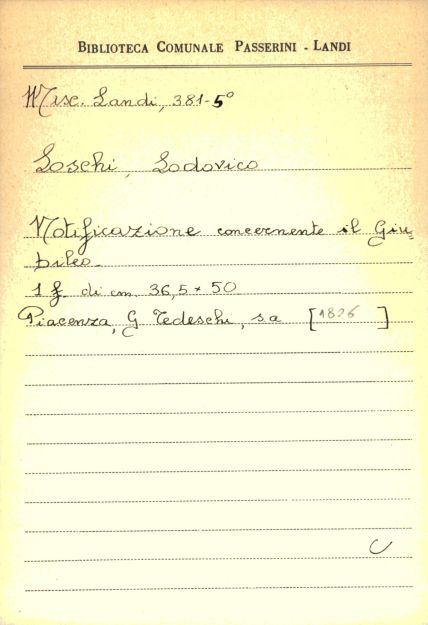 BIBLIOTECA COMUNALE PASSERINI - LANDI
Misc. Landi, 381-5°
Loschi, Lodovico
Notificazione concernente il Giu-
bileo.
1 f. di cm. 36,5 × 50
Piacenza, G. Tedeschi, s.a. [1826]
C